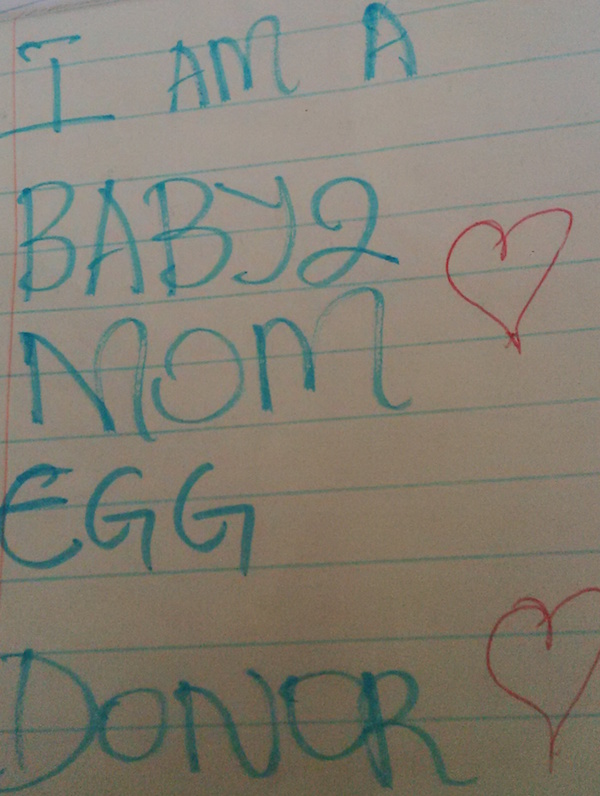 I AM A
BABY2
MOM
EGG
DONOR